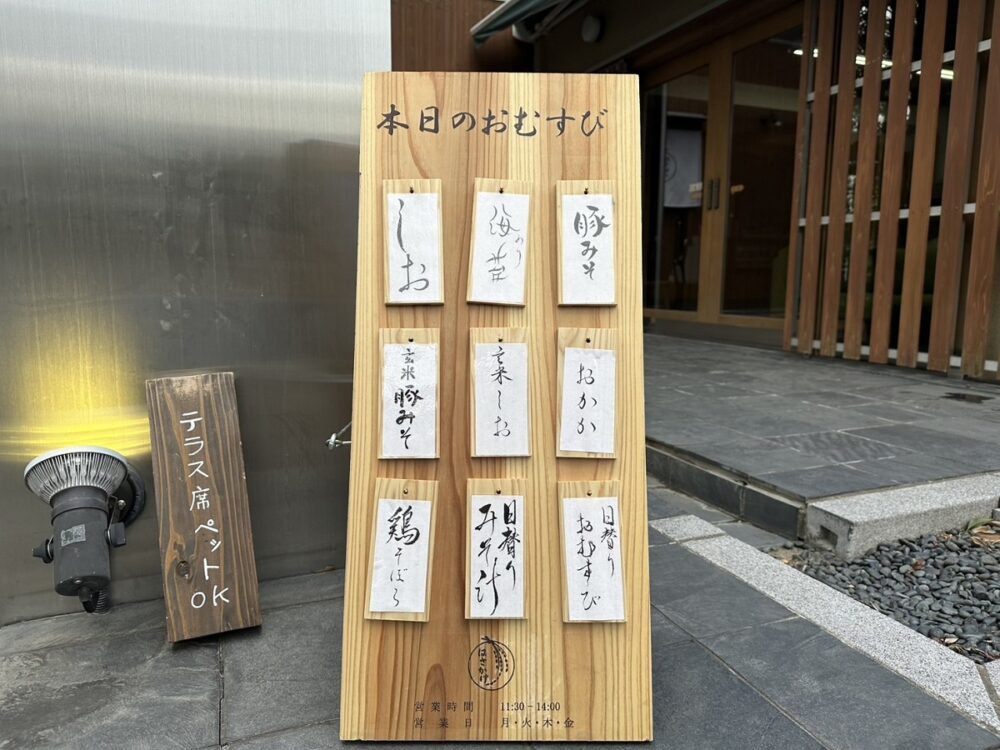 本日のおむすび
しお
海苔
のり
豚みそ
玄米
豚みそ
玄米しお
おかか
鶏そぼろ
日替り
みそ汁
日替り
おむすび
はさがけ
営業時間 11:30－14:00
営業日 月・火・木・金
テラス席ペットOK